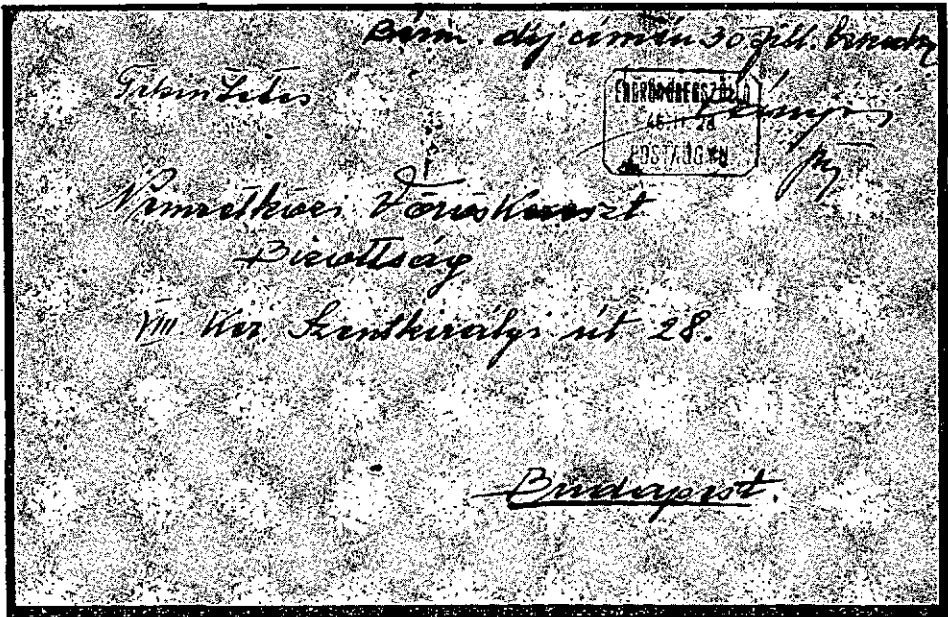 Bérm. díj címén 30 fill. beszedve
Tekintetes
46.11.28
POSTAÜGYN
Nemzetközi Vöröskereszt
Bizottság
VIII Ker. Szentkirályi út 28.
Budapest.